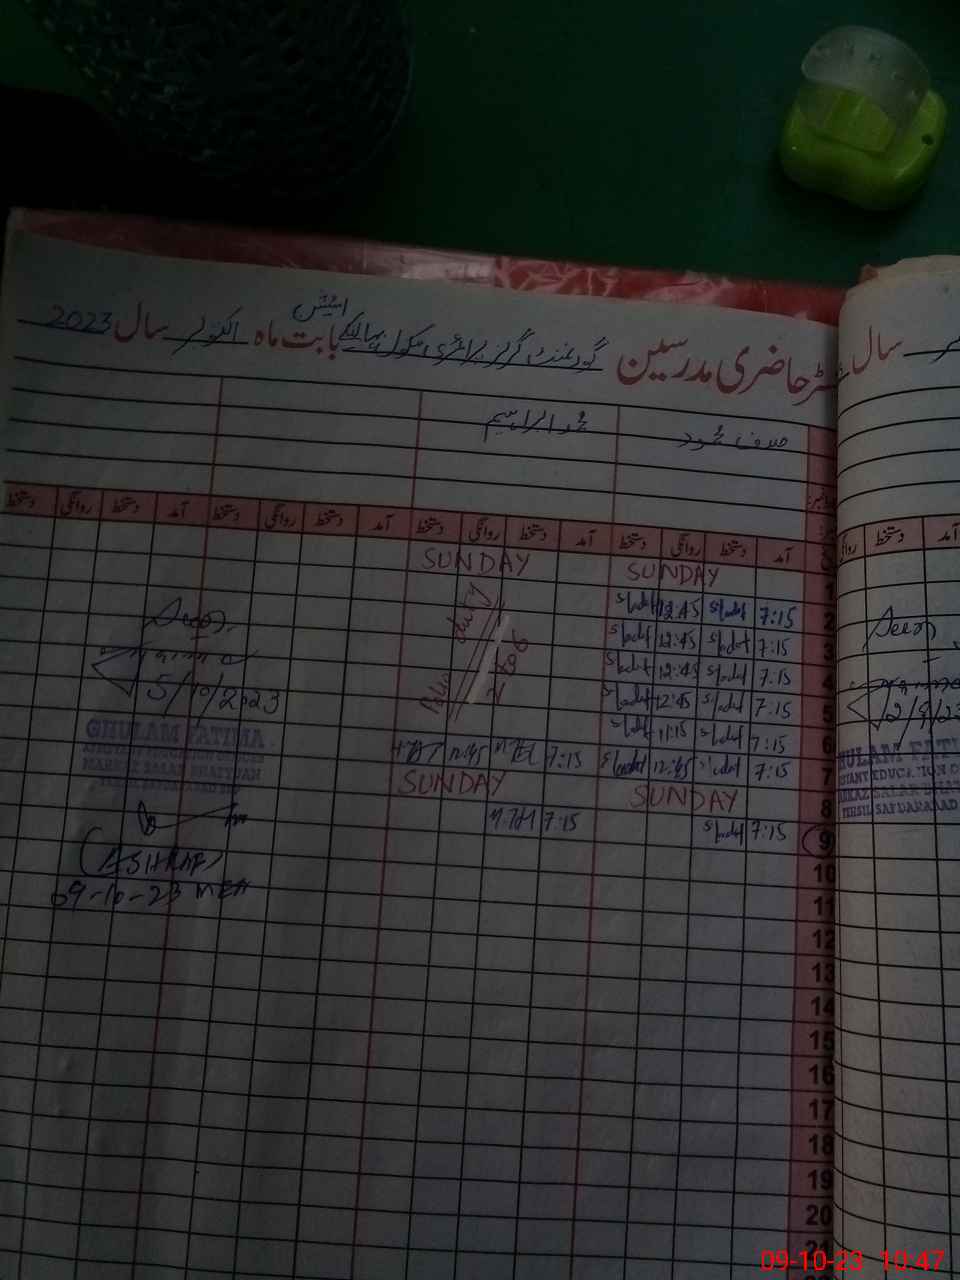 رجسٹر حاضری مدرسین گورنمنٹ گرلز پرائمری سکول بابت ماہ اکتوبر سال 2023
اسٹیشن
سال
صدف محمود
محمد ابراہیم
آمد دستخط روانگی دستخط آمد دستخط روانگی دستخط آمد دستخط روانگی دستخط آمد دستخط روانگی دستخط
آمد دستخط روانگی
1 SUNDAY SUNDAY
2 7:15 12:45
3 7:15 12:45
4 7:15 12:45
5 7:15 12:45
6 7:15 11:15
7 7:15 12:45 7:15 12:45
8 SUNDAY SUNDAY
9 7:15 7:15
10
11
12
13
14
15
16
17
18
19
20
21
duty
2 to 6
Seen
5/10/2023
GHULAM FATIMA
ASSISTANT EDUCATION OFFICER
MARKAZ SALAR BHATYAN
TEHSIL SAFDARABAD
(ASHRAF)
09-10-23 MEA
Seen
2/9/23
GHULAM FATI
09-10-23 10:47